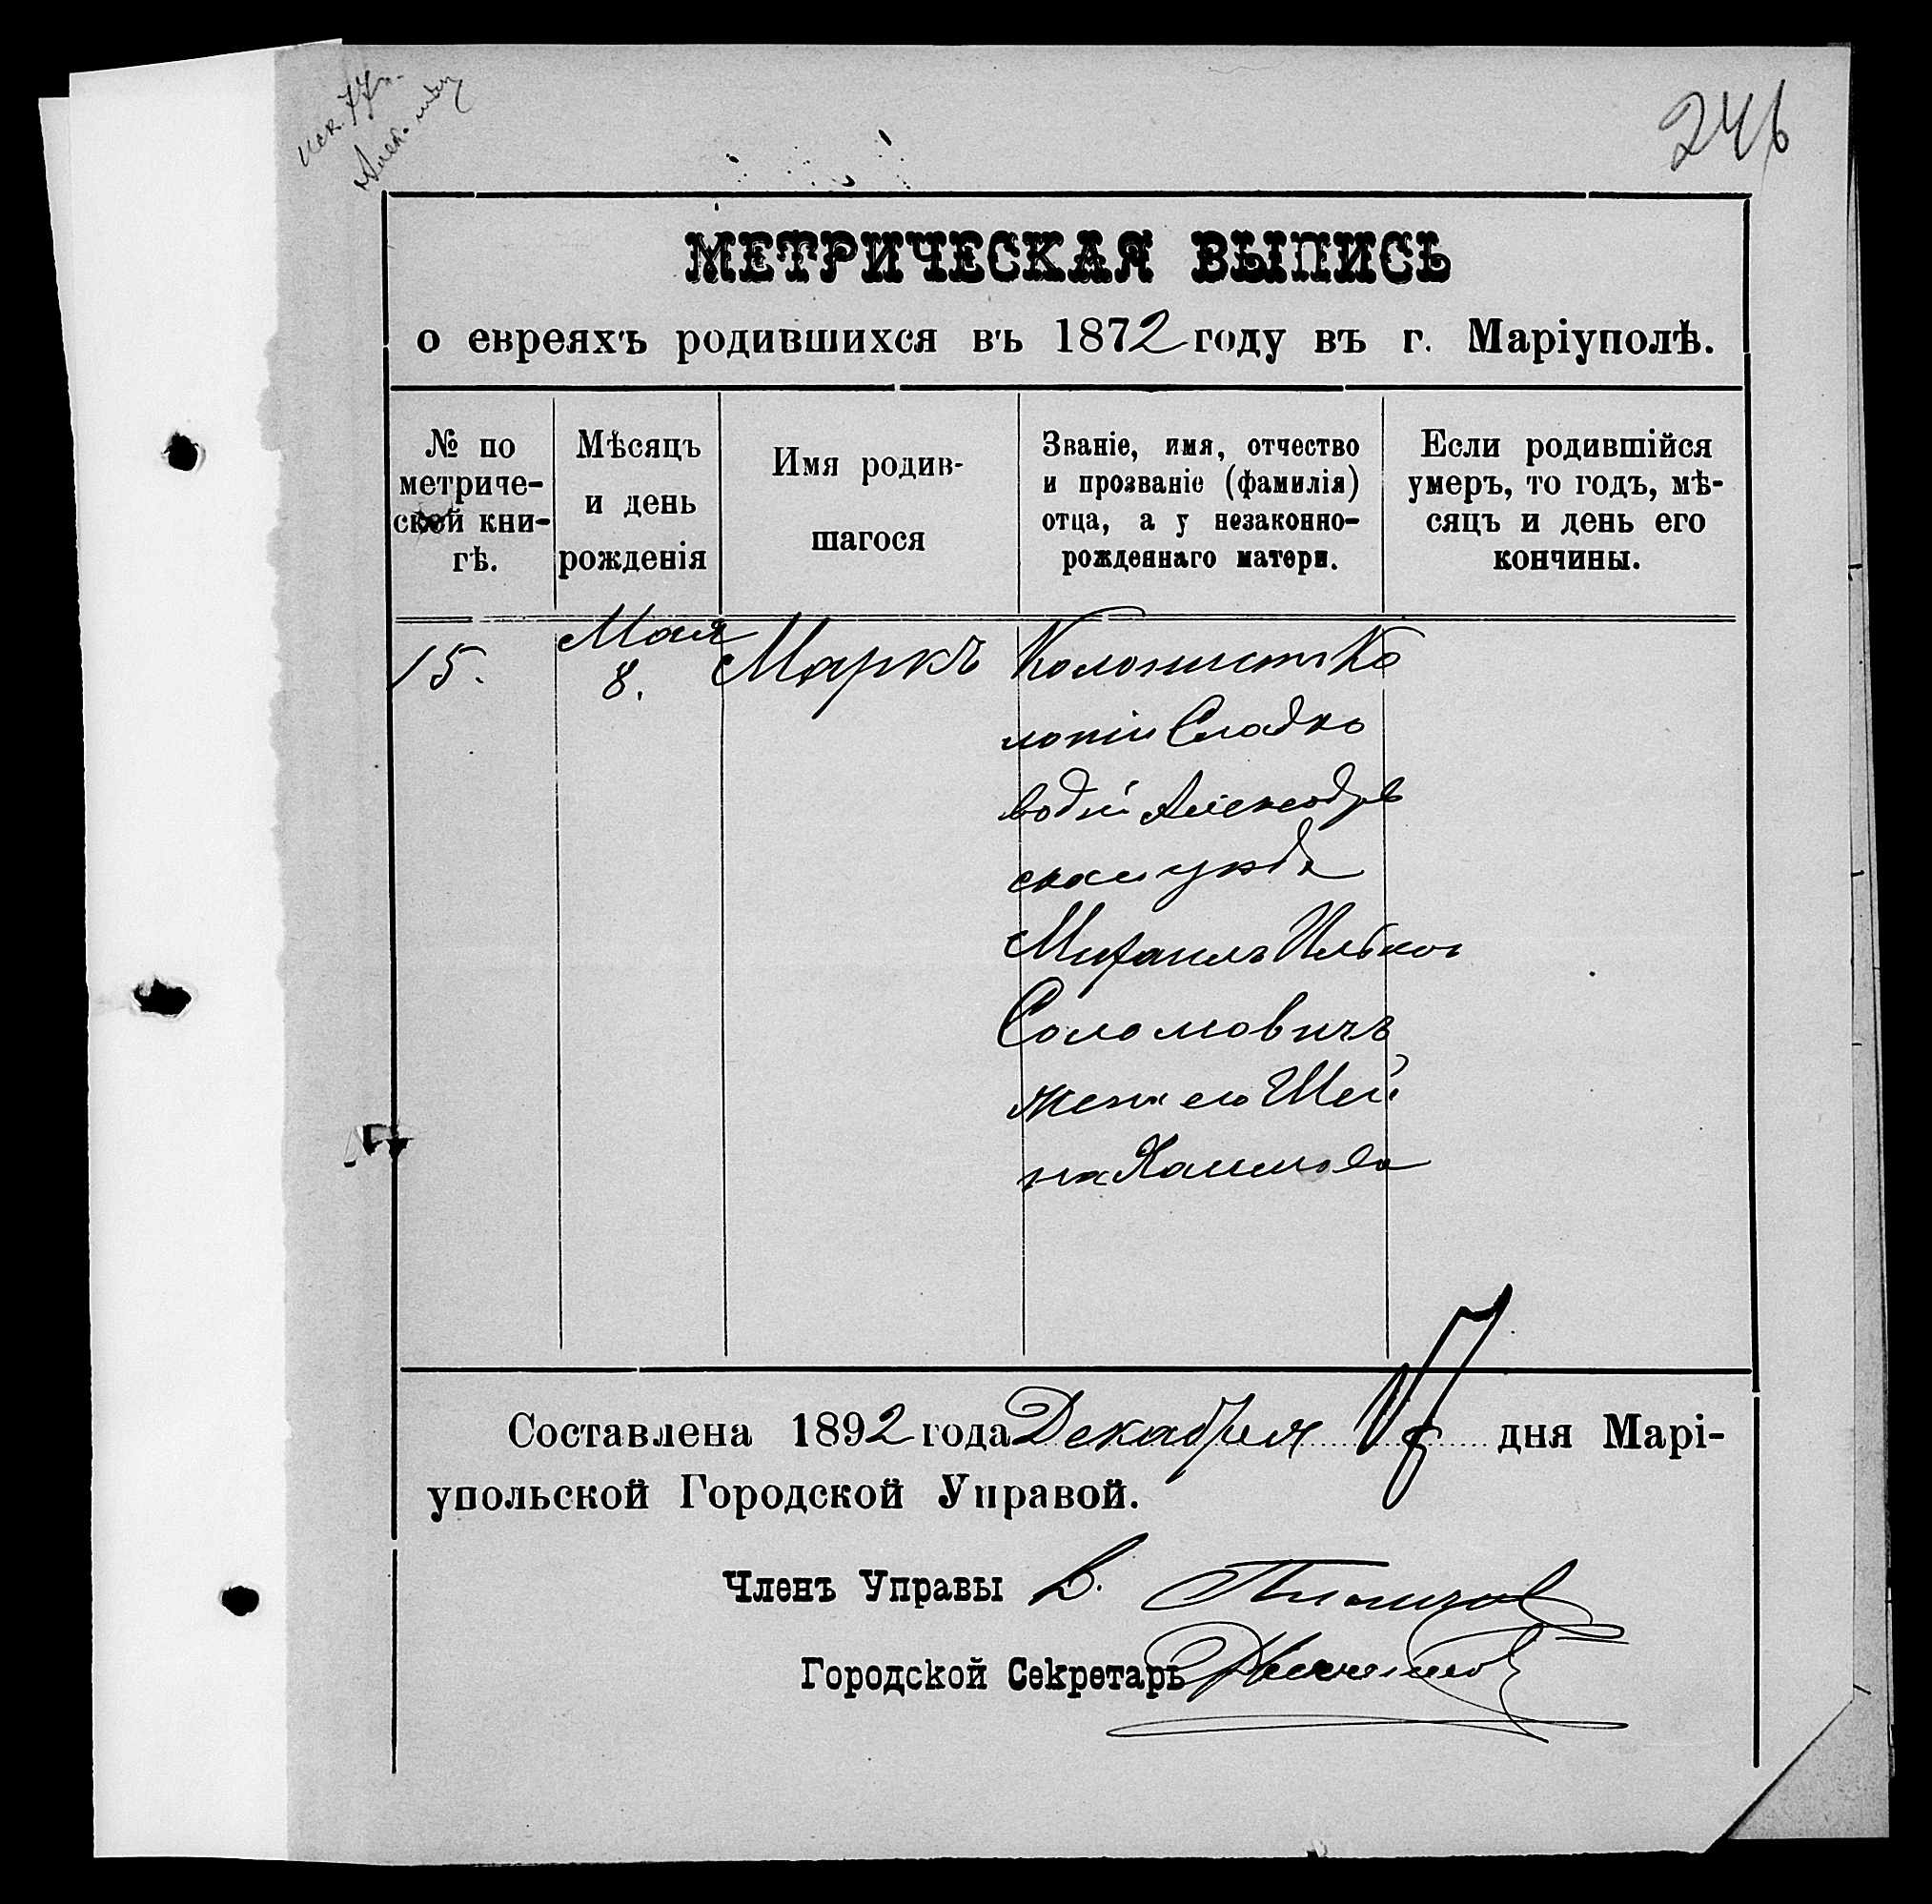 246
МЕТРИЧЕСКАЯ ВЫПИСЬ
о евреяхъ родившихся въ 1872 году въ г. Маріуполѣ.
№ по метриче-ской кни-гѣ.
Мѣсяцъ и день рожденія
Имя родив-шагося
Званіе, имя, отчество и прозваніе (фамилія) отца, а у незаконно-рожденнаго матери.
Если родившійся умеръ, то годъ, мѣ-сяцъ и день его кончины.
15.
Мая
8.
Маркъ
Колонистъ Ко
лоніи Сладко
водной Александров
скаго уѣзда
Михаилъ Ицков
Соломовичъ
жена его Шей
на Хаимова
Составлена 1892 года Декабря дня Марі-
упольской Городской Управой.
Членъ Управы В.
Городской Секретарь